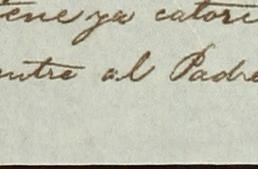 tiene ya catorc
entre al Padre